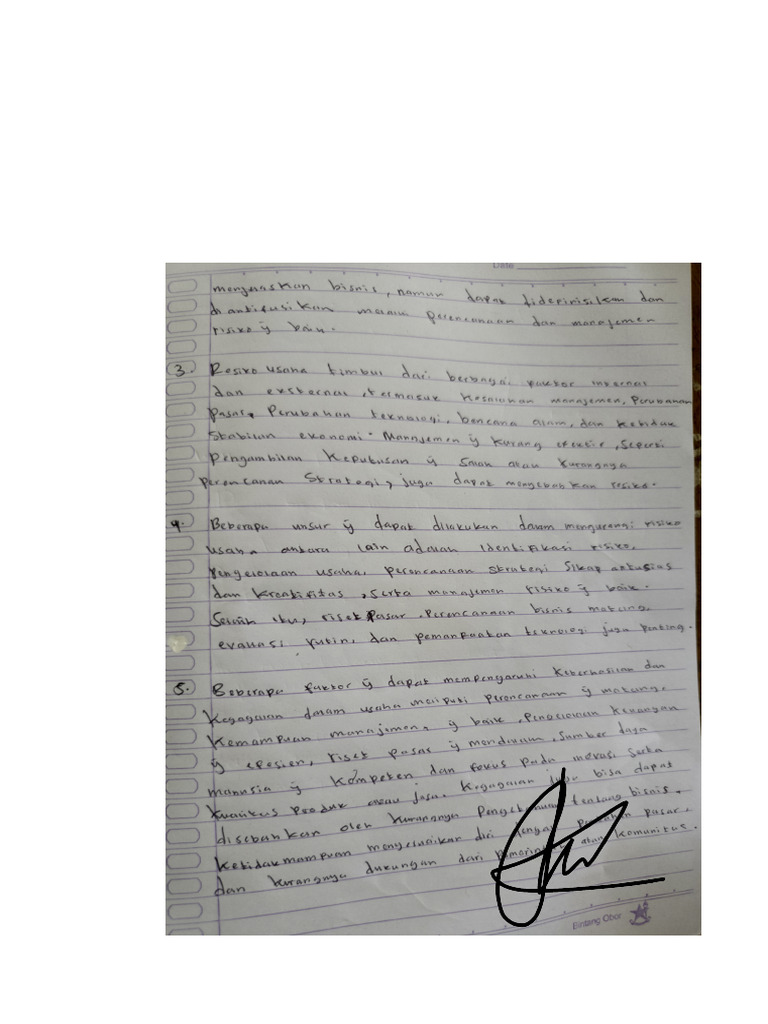 Date
bisnis, namun dapat dan
perencanaan dan manajemen
risiko ÿ baik.
3. Resiko usaha timbul dari berbagai faktor internal
dan eksternal, termasuk kesalahan manajemen, Perubahan
pasar, Perubahan teknologi, bencana alam, dan ketidak
stabilan ekonomi. Manajemen ÿ kurang efektif, seperti
pengambilan keputusan ÿ salah atau kurangnya
perencanan strategi, juga dapat menyebabkan resiko.
4. Beberapa unsur ÿ dapat dilakukan dalam mengurangi risiko
usaha antara lain adalah identifikasi risiko,
pengelolaan usaha, perencanaan strategi sikap antusias
dan kreatifitas, serta manajemen risiko ÿ baik.
Selain itu, riset pasar, perencanaan bisnis matang,
evaluasi rutin, dan pemanfaatan teknologi juga penting.
5. Beberapa faktor ÿ dapat mempengaruhi keberhasilan dan
kegagalan dalam usaha meliputi perencanaan ÿ matang,
kemampuan manajemen, ÿ baik, pengelolaan keuangan
ÿ efesien, riset pasar ÿ mendalam, sumber daya
manusia ÿ kompeten dan fokus pada inovasi serta
kualitas produk atau jasa. Kegagalan juga bisa dapat
disebabkan oleh kurangnya tentang bisnis,
ketidakmampuan menyesuaikan diri dengan pasar,
dan kurangnya dukungan dari pemerintah atau komunitas.
Bintang Obor